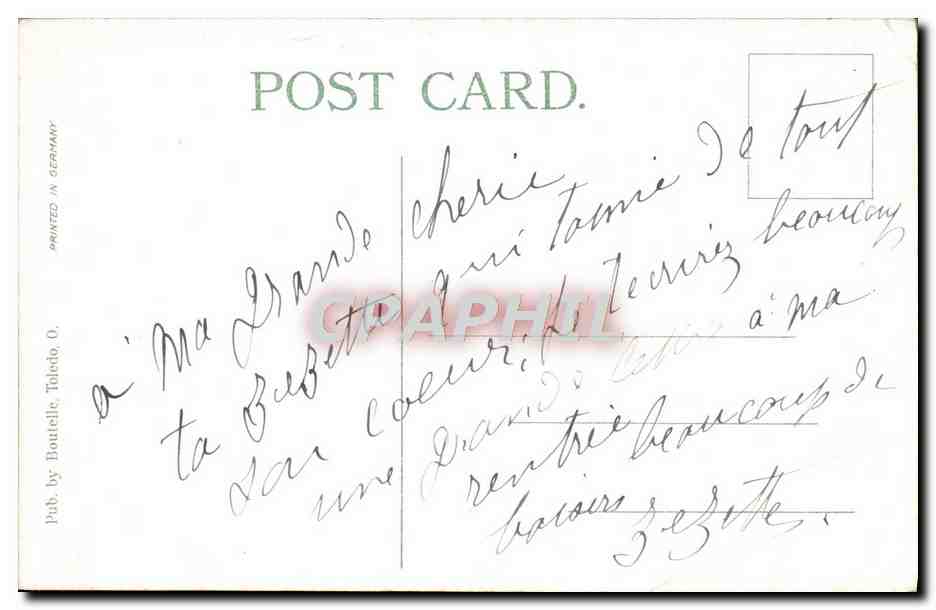 POST CARD.
PRINTED IN GERMANY
Pub. by Boutelle, Toledo, O.
CPAPHIL
à Ma Grande cherie
ta ZeZette qui t'aime de tout
son coeur, je t'ecrirez beaucoup
une grande lettre à ma
rentrée beaucoup de
baisers
ZeZette.